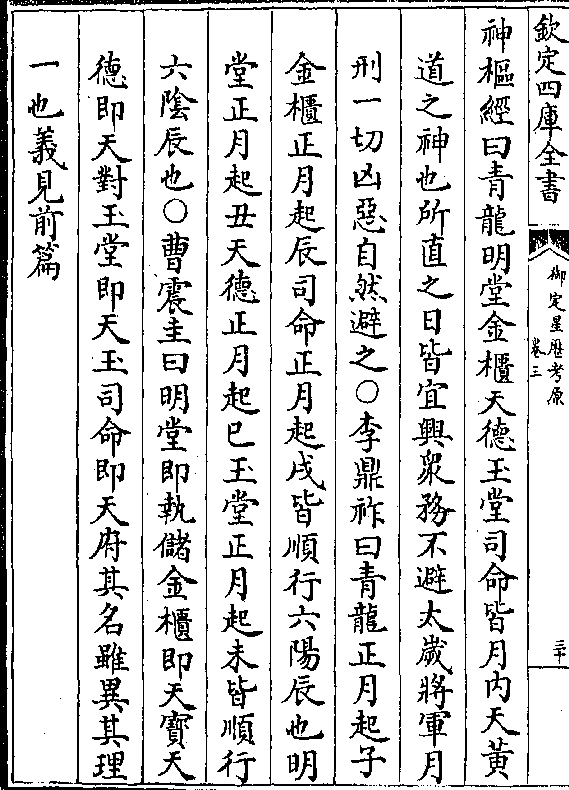 欽定四庫全書
御定星歷考原
卷三
二十
神樞經曰青龍明堂金櫃天德玉堂司命皆月內天黃
道之神也所直之日皆宜興衆務不避太歲將軍月
刑一切凶惡自然避之○李鼎祚曰青龍正月起子
金櫃正月起辰司命正月起戌皆順行六陽辰也明
堂正月起丑天德正月起巳玉堂正月起未皆順行
六隂辰也○曹震圭曰明堂即執儲金櫃即天寳天
德即天對玉堂即天玉司命即天府其名雖異其理
一也義見前篇